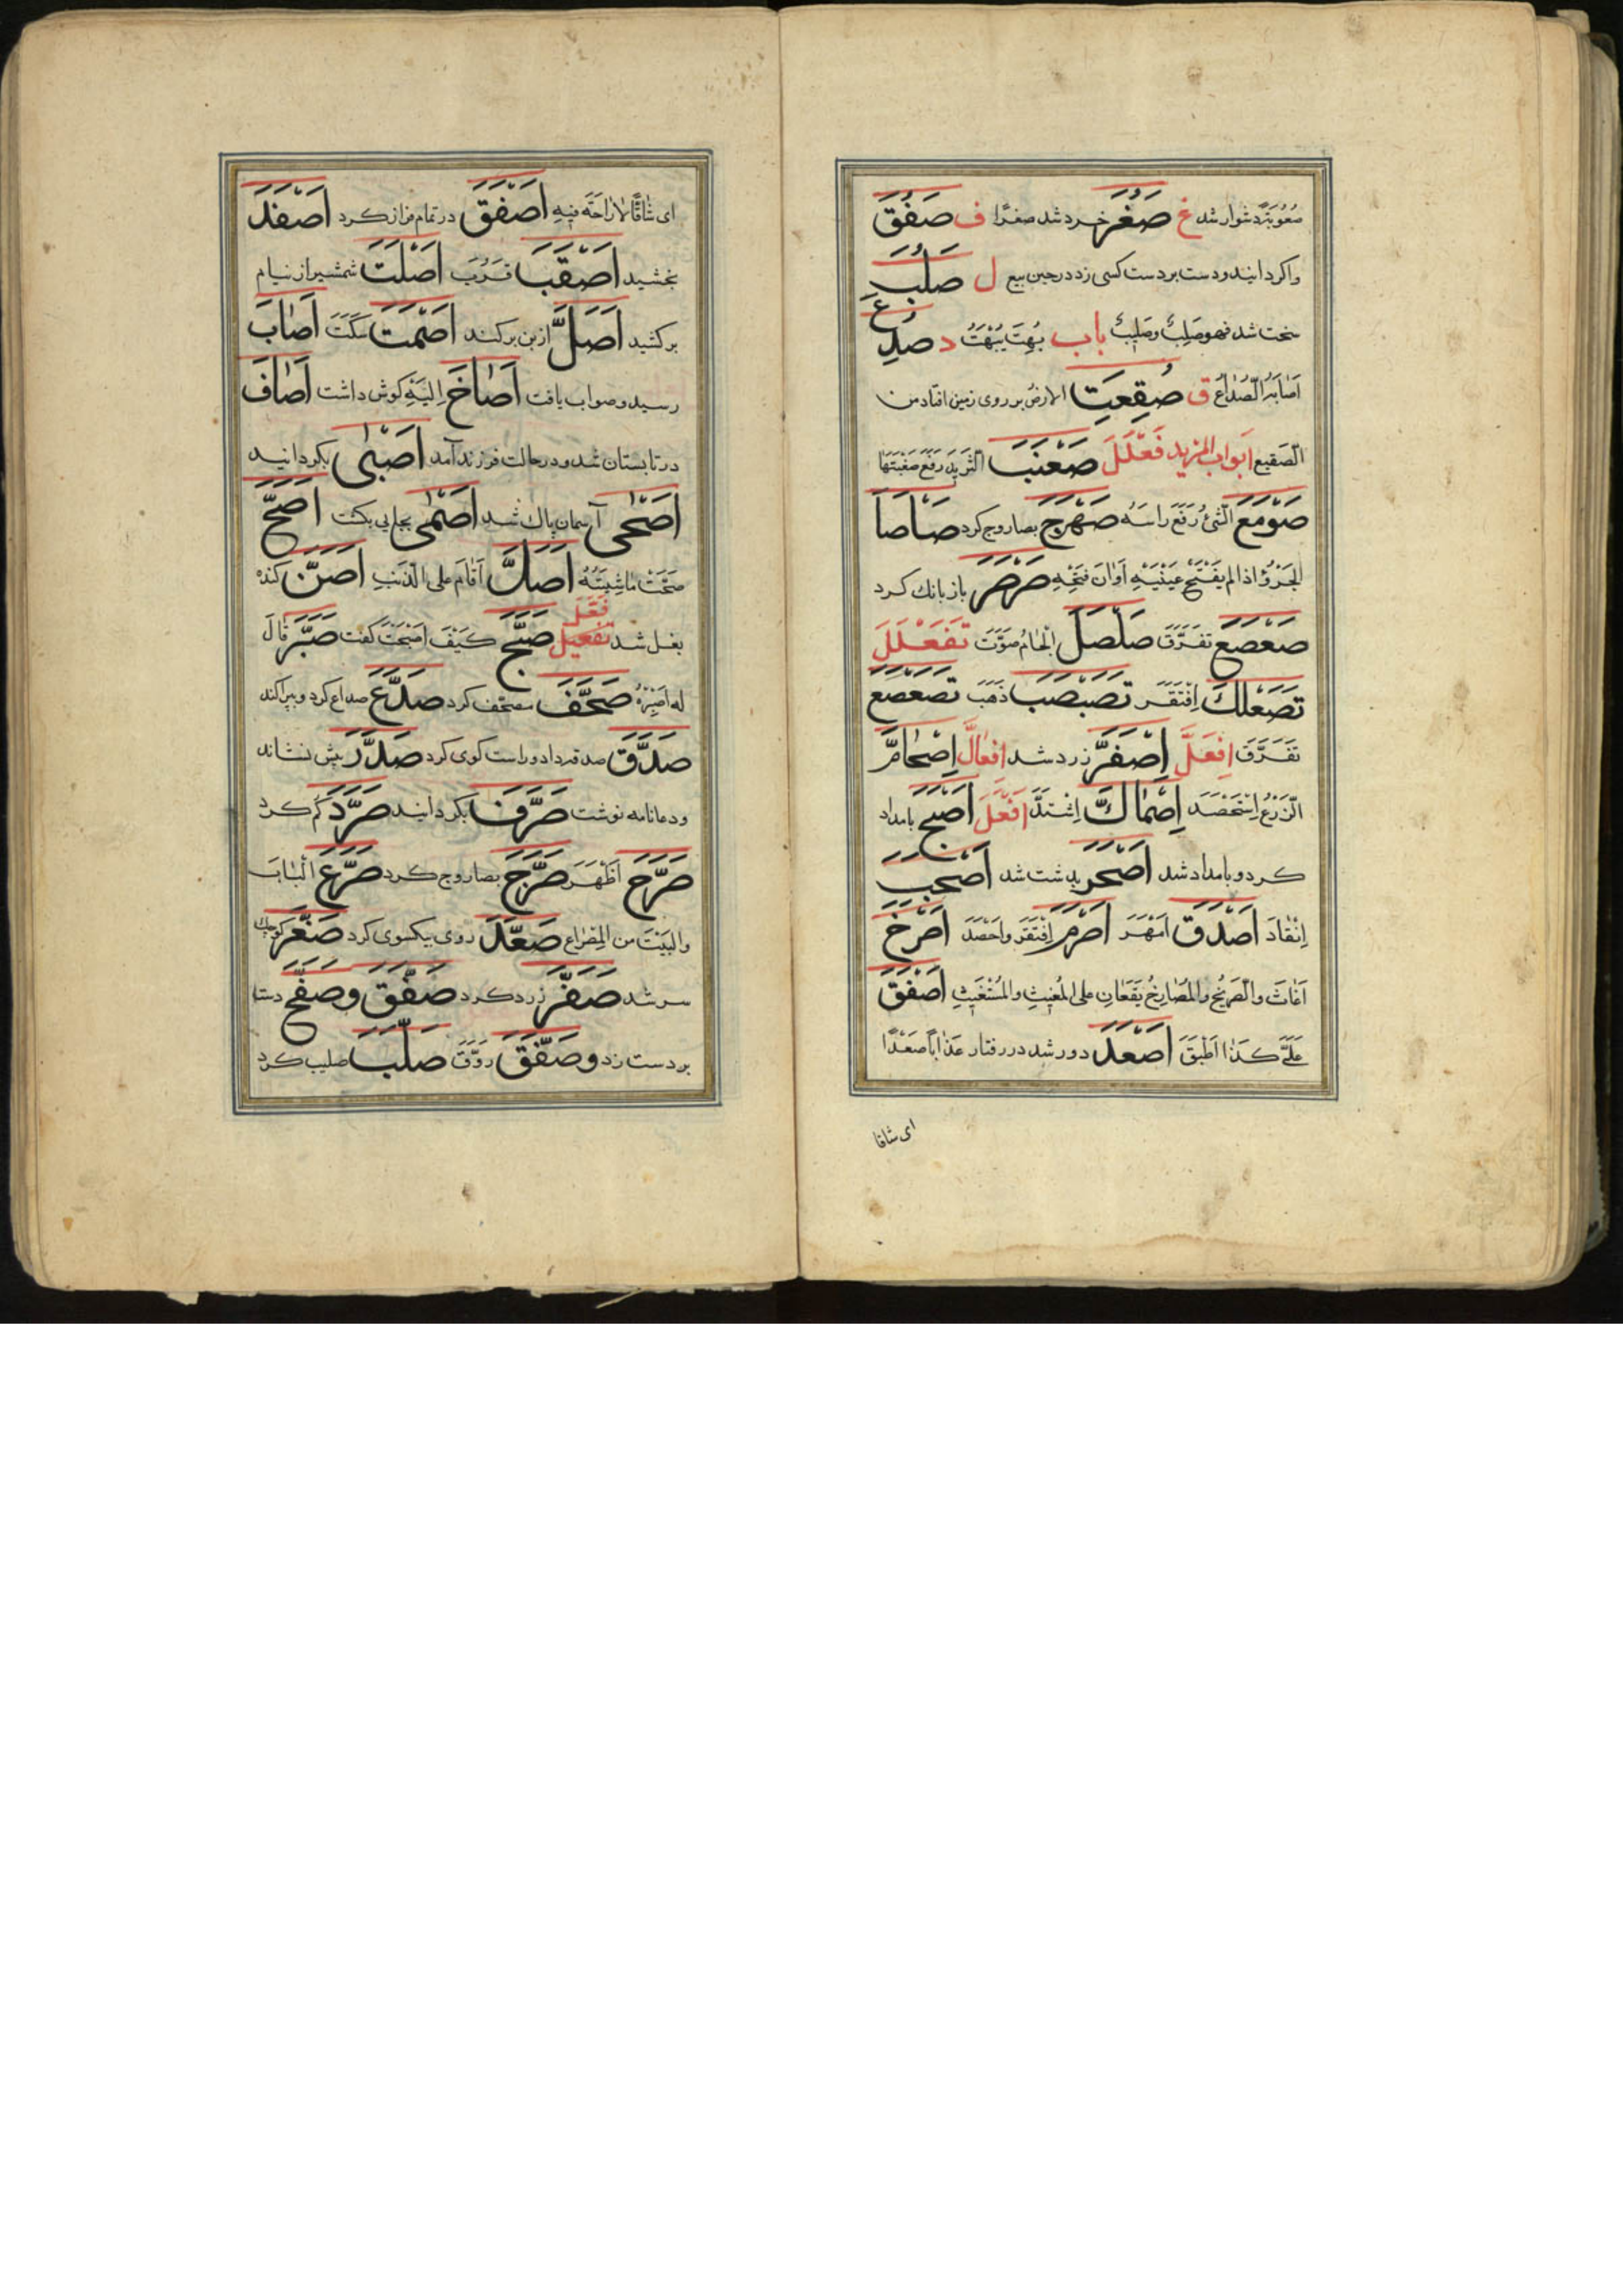 صُعُوبَةً دشوار شد غ صَغُرَ خرد شد صغرًا ف صَفُقَ
واکردانید و دست بر دست کسی زد در حین بیع ل صَلُبَ
سخت شد فهو صَلِبٌ وصَلِیبٌ باب بُهِتَ یُبْهَتُ د صُدِعَ
اَصَابَهُ الصُّدَاعُ ق صُقِعَتِ الارضُ بر روی زمین افتاد من
الصَّقِیع ابواب المزید فَعْلَلَ صَعْنَبَ الثَّرِیدَ رَفَعَ
صَوْمَعَ الشَّئَ رَفَعَ رَاسَهُ صَهْرَجَ بصاروج کرد صَاْصَاَ
الجَرْوُ اذا لم یَفْتَحْ عَیْنَیْهِ اَوَانَ فَتْحِهِ صَرْصَرَ باز بانك کرد
صَعْصَعَ تَفَرَّقَ صَلْصَلَ اللِّجَامُ صَوَّتَ تَفَعْلَلَ
تَصَعْلَكَ اِفْتَقَرَ تَصَبْصَبَ ذَهَبَ تَصَعْصَعَ
تَفَرَّقَ اِفْعَلَّ اِصْفَرَّ زرد شد افعَالَّ اِصْحَامَّ
الزَّرْعُ اِسْتَحْصَدَ اِصْمَاكَّ اِشْتَدَّ اَفْعَلَ اَصْبَحَ بامداد
کرد و بامداد شد اَصْحَرَ بدشت شد اَصْحَبَ
اِنْقَادَ اَصْدَقَ اَمْهَرَ اَصْرَمَ اِفْتَقَرَ واَحْصَدَ اَصْرَخَ
اَغَاثَ والصَّرِیخُ والمُصَارِخُ یَقَعَانِ علی المُغِیثِ والمُسْتَغِیثِ اَصْفَقَ
عَلَیَّ کَذَا اَطْبَقَ اَصْعَدَ دور شد در رفتار عَذَابًا صَعَدًا
ای شاقا
ای شَاقًّا لَارَاحَةَ فیهِ اَصْفَقَ در تمام فراز کرد اَصْفَدَ
بخشید اَصْقَبَ قَرُبَ اَصْلَتَ شمشیر از نیام
برکشید اَصَلَّ از بن برکند اَصْمَتَ سَکَتَ اَصَابَ
رسید و صواب یافت اَصَاخَ اِلَیْهِ کوش داشت اَصَافَ
در تابستان شد و در حالت فرزند آمد اَصْبَی بکردانید
اَصْحَی آسمان پاك شد اَصْمَی بجایی بکشت اَصَحَّ
صَحَّتْ مَاشِیَتُهُ اَصَلَّ اَقَامَ علی الذَّنبِ اَصَنَّ کنده
بغل شد فَعَّلَ تَفْعِیل صَبَّحَ کَیْفَ اَصْبَحْتَ کفت صَبَّرَ قَالَ
له اصْبِرْ صَحَّفَ مصحّف کرد صَدَّعَ صداع کرد و بپراکند
صَدَّقَ صدقه داد و راست کوی کرد صَدَّرَ پیش نشاند
و دعا نامه نوشت صَرَّفَ بکردانید صَرَّدَ کم کرد
صَرَّحَ اَظْهَرَ صَرَّجَ بصاروج کرد صَرَّعَ الْبَابَ
والبَیْتَ من المِصْرَاع صَعَّدَ روی بیکسوی کرد صَغَّرَ کوچك
سر شد صَفَّرَ زرد کرد صَفَّقَ وصَفَّحَ دستا
بر دست زد وصَفَّقَ رَوَّقَ صَلَّبَ صلیب کرد